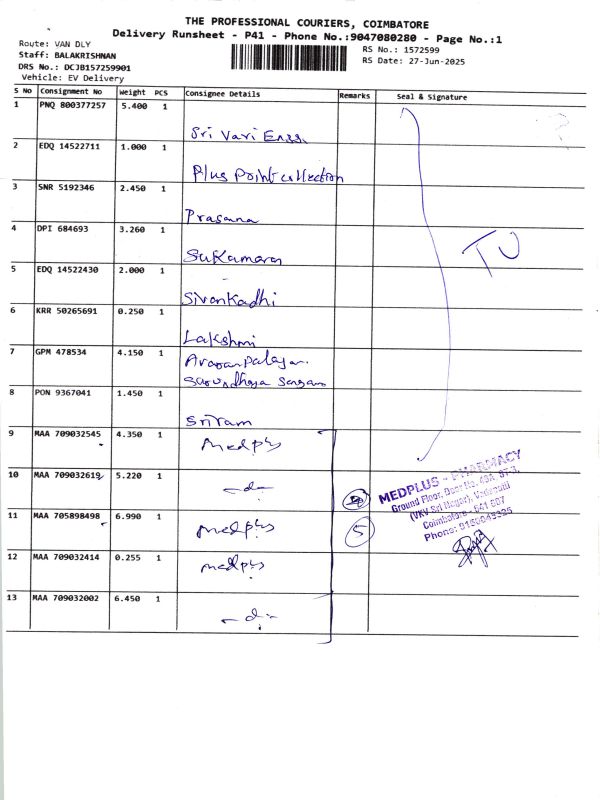 THE PROFESSIONAL COURIERS, COIMBATORE
Delivery Runsheet - P41 - Phone No.:9047080280 - Page No.:1
Route: VAN DLY
Staff: BALAKRISHNAN
DRS No.: DCJB157259901
Vehicle: EV Delivery
RS No.: 1572599
RS Date: 27-Jun-2025
S No Consignment No Weight PCS Consignee Details Remarks Seal & Signature
1 PNQ 800377257 5.400 1
Sri Vari
2 EDQ 14522711 1.000 1
Plus Point collection
3 SNR 5192346 2.450 1
Prasana
4 DPI 684693 3.260 1
Sukamaran
5 EDQ 14522430 2.000 1
Sivankadhi
6 KRR 50265691 0.250 1
Lakshmi
7 GPM 478534 4.150 1
8 PON 9367041 1.450 1
Sriram
9 MAA 709032545 4.350 1
Medpls
10 MAA 709032619 5.220 1
-d-
11 MAA 705898498 6.990 1
medpls
5
12 MAA 709032414 0.255 1
medpls
13 MAA 709032002 6.450 1
-d-
TU
MEDPLUS - PHARMACY
Ground Floor, Door No.
(VKV Sri Nagar),
Coimbatore - 641 607
Phone: